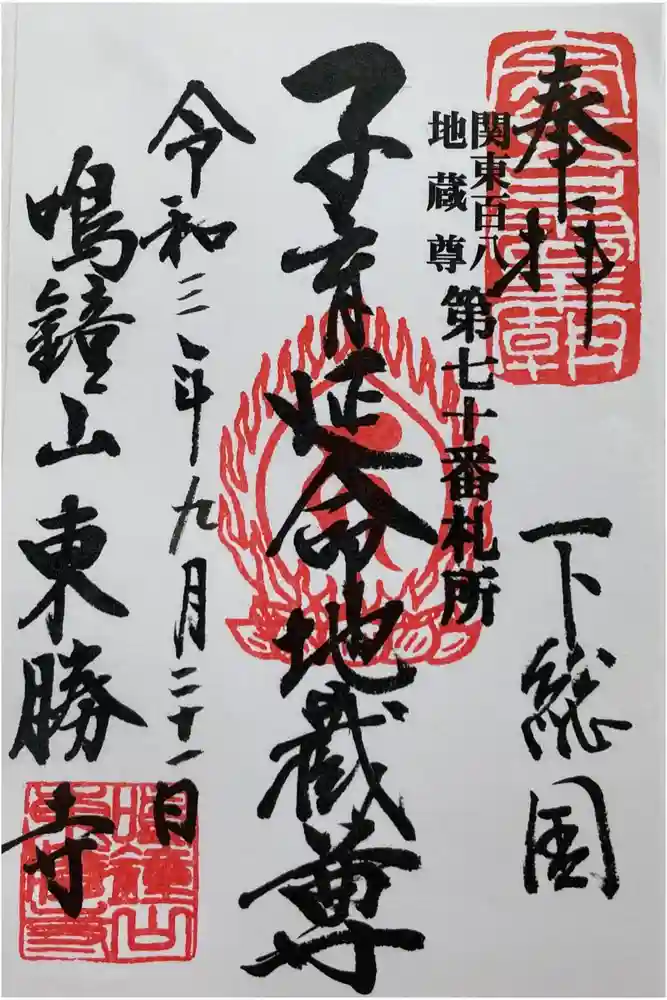 奉拝
下総国
関東百八
地蔵尊
第七十番札所
子育延命地蔵尊
令和三年九月二十一日
鳴鐘山東勝寺
鳴鐘山
東勝寺